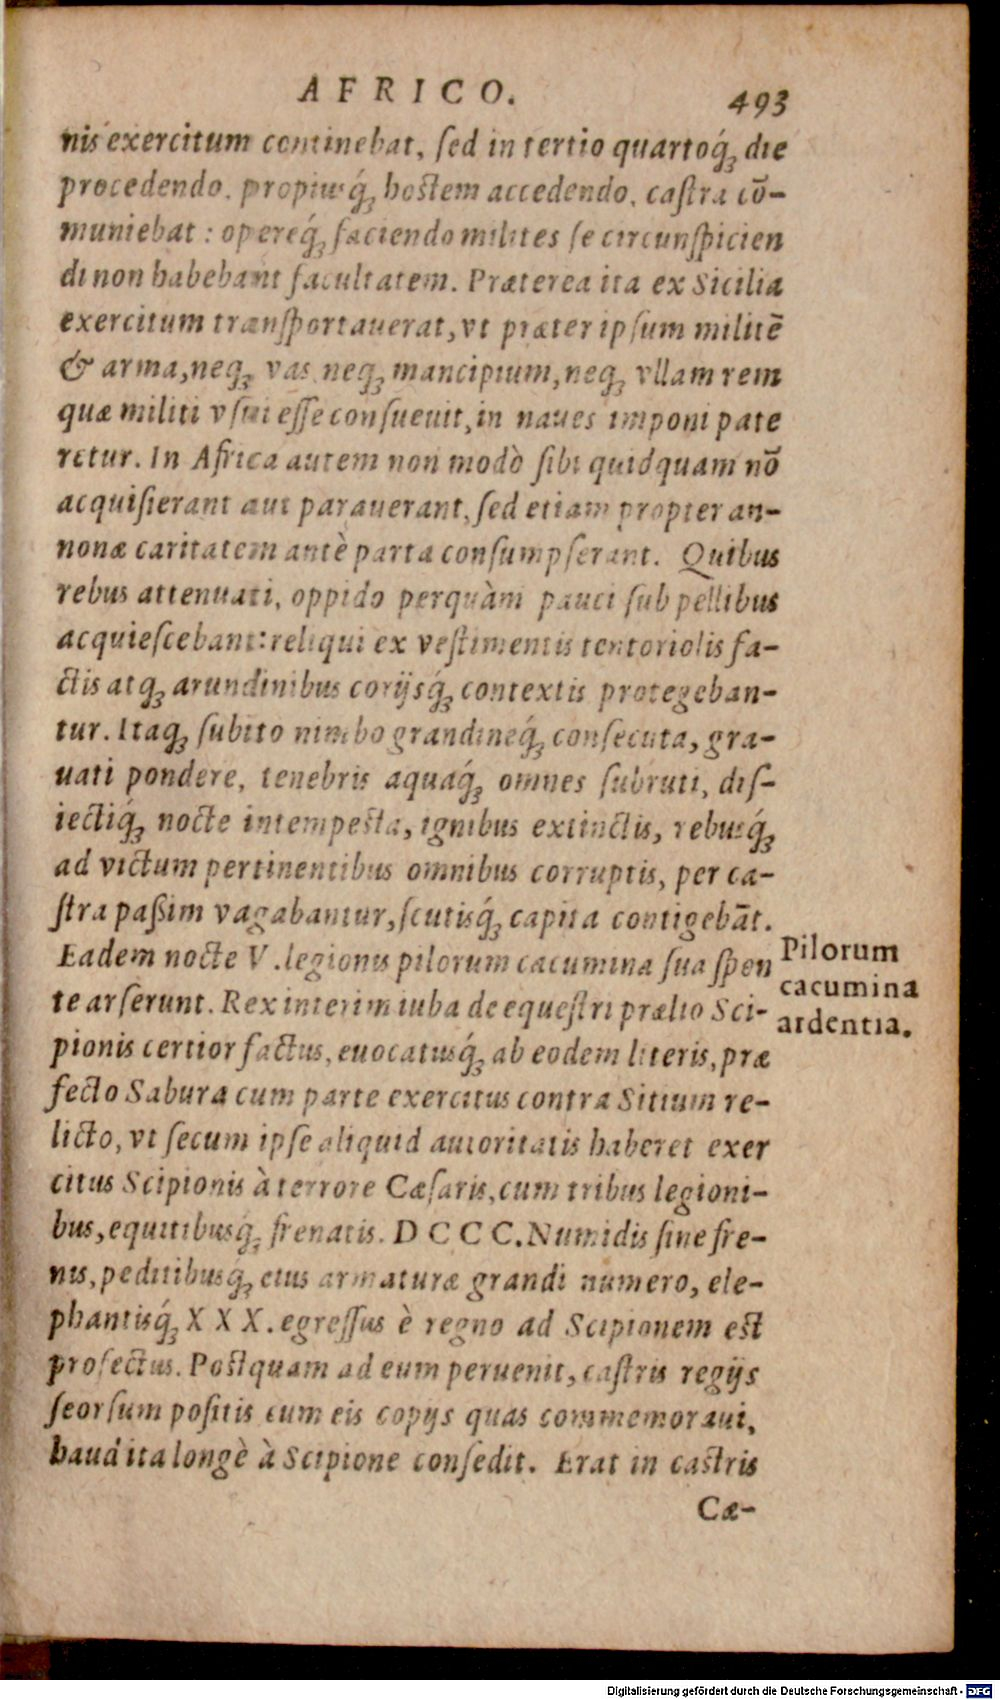 AFRICO. 493
nis exercitum continebat, ſed in tertio quartoq́; die
procedendo, propiusq́; hoſtem accedendo, caſtra cō-
muniebat: opereq́; faciendo milites ſe circunſpicien
di non habebant facultatem. Præterea ita ex Sicilia
exercitum tranſportauerat, vt præter ipſum militē
& arma, neq; vas neq; mancipium, neq; vllam rem
quæ militi vſui eſſe conſueuit, in naues imponi pate
retur. In Africa autem non modò ſibi quidquam nō
acquiſierant aut parauerant, ſed etiam propter an-
nonæ caritatem antè parta conſumpſerant. Quibus
rebus attenuati, oppido perquàm pauci ſub pellibus
acquieſcebant: reliqui ex veſtimentis tentoriolis fa-
ctis atq; arundinibus corijsq́; contextis protegeban-
tur. Itaq; ſubito nimbo grandineq́; conſecuta, gra-
uati pondere, tenebris aquaq́; omnes ſubruti, diſ-
iectiq́; nocte intempeſta, ignibus extinctis, rebusq́;
ad victum pertinentibus omnibus corruptis, per ca-
ſtra paßim vagabantur, ſcutisq́; capita contigebāt.
Eadem nocte V. legionis pilorum cacumina ſua ſpon
te arſerunt. Rex interim iuba de equeſtri prælio Sci-
pionis certior factus, euocatusq́; ab eodem literis, præ
fecto Sabura cum parte exercitus contra Sitium re-
licto, vt ſecum ipſe aliquid autoritatis haberet exer
citus Scipionis à terrore Cæſaris, cum tribus legioni-
bus, equitibusq́; frenatis. DCCC. Numidis ſine fre-
nis, peditibusq́; eius armaturæ grandi numero, ele-
phantisq́; XXX. egreſſus è regno ad Scipionem eſt
profectus. Poſtquam ad eum peruenit, caſtris regijs
ſeorſum poſitis cum eis copijs quas commemoraui,
haud ita longè à Scipione conſedit. Erat in caſtris
Cæ-
Pilorum
cacumina
ardentia.
Digitalisierung gefördert durch die Deutsche Forschungsgemeinschaft - DFG